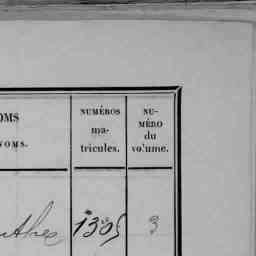 OMS
NOMS.
NUMÉROS
ma-
tricules.
NU-
MÉRO
du
vo'ume.
1305
3